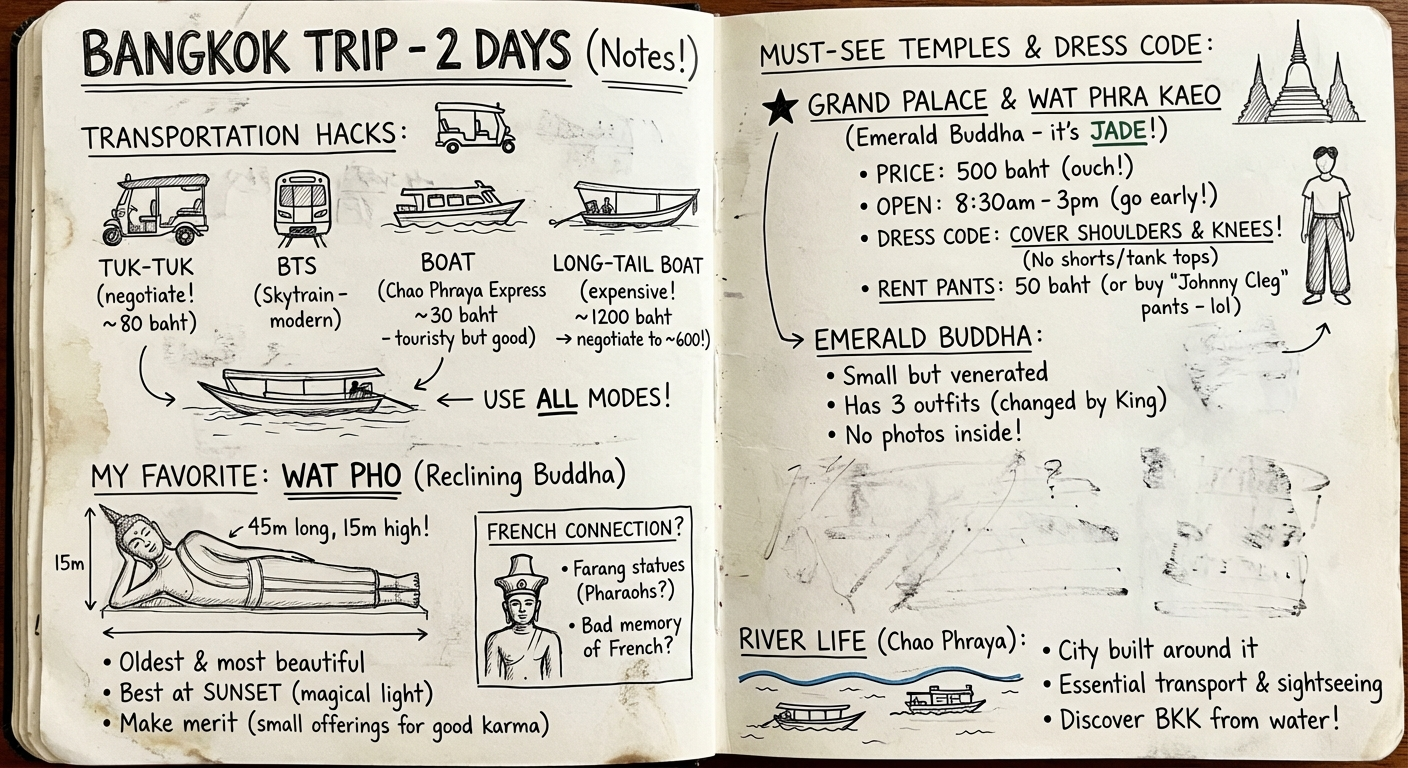 BANGKOK TRIP - 2 DAYS (Notes!)
TRANSPORTATION HACKS:
TUK-TUK
(negotiate!
~80 baht)
BTS
(Skytrain -
modern)
BOAT
(Chao Phraya Express
~30 baht
- touristy but good)
LONG-TAIL BOAT
(expensive!
~1200 baht
→ negotiate to ~600!)
← USE ALL MODES!
MY FAVORITE: WAT PHO (Reclining Buddha)
45m long, 15m high!
15m
• Oldest & most beautiful
• Best at SUNSET (magical light)
• Make merit (small offerings for good karma)
FRENCH CONNECTION?
• Farang statues
(Pharaohs?)
• Bad memory
of French?
MUST-SEE TEMPLES & DRESS CODE:
★ GRAND PALACE & WAT PHRA KAEO
(Emerald Buddha - it's JADE!)
• PRICE: 500 baht (ouch!)
• OPEN: 8:30am - 3pm (go early!)
• DRESS CODE: COVER SHOULDERS & KNEES!
(No shorts/tank tops)
• RENT PANTS: 50 baht (or buy "Johnny Cleg"
pants - lol)
EMERALD BUDDHA:
• Small but venerated
• Has 3 outfits (changed by King)
• No photos inside!
RIVER LIFE (Chao Phraya):
• City built around it
• Essential transport & sightseeing
• Discover BKK from water!